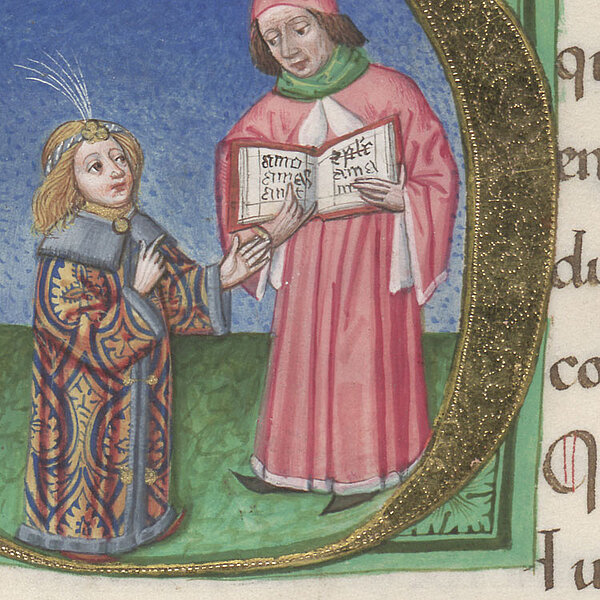 amo
amas
amat
ama
qu
en
du
co
Q
Iu